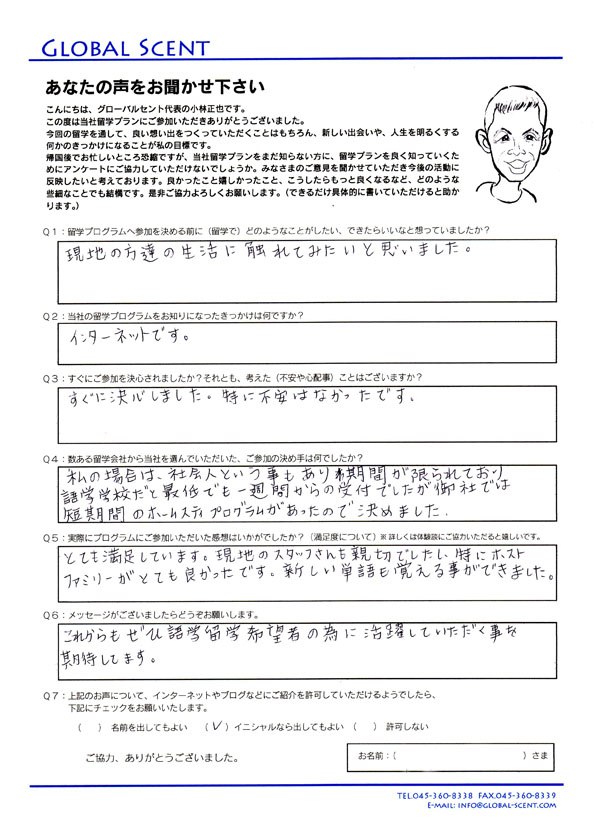 GLOBAL SCENT
あなたの声をお聞かせ下さい
こんにちは、グローバルセント代表の小林正也です。
この度は当社留学プランにご参加いただきありがとうございました。
今回の留学を通して、良い想い出をつくっていただくことはもちろん、新しい出会いや、人生を明るくする
何かのきっかけになることが私の目標です。
帰国後でお忙しいところ恐縮ですが、当社留学プランをまだ知らない方に、留学プランを良く知っていくた
めにアンケートにご協力していただけないでしょうか。みなさまのご意見を聞かせていただき今後の活動に
反映したいと考えております。良かったこと嬉しかったこと、こうしたらもっと良くなるなど、どのような
些細なことでも結構です。是非ご協力よろしくお願いします。（できるだけ具体的に書いていただけると助か
ります。）
Q1：留学プログラムへ参加を決める前に（留学で）どのようなことがしたい、できたらいいなと想っていましたか？
現地の方達の生活に触れてみたいと思いました。
Q2：当社の留学プログラムをお知りになったきっかけは何ですか？
インターネットです。
Q3：すぐにご参加を決心されましたか？それとも、考えた（不安や心配事）ことはございますか？
すぐに決心しました。特に不安はなかったです。
Q4：数ある留学会社から当社を選んでいただいた、ご参加の決め手は何でしたか？
私の場合は、社会人という事もあり期間が限られており
語学学校だと最低でも一週間からの受付でしたが御社では
短期間のホームスティプログラムがあったので決めました.
Q5：実際にプログラムにご参加いただいた感想はいかがでしたか？（満足度について）※詳しくは体験談にご協力いただめると嬉しいです。
とても満足しています。現地のスタッフさんも親切でしたし、特にホスト
ファミリーがとても良かったです。新しい単語も覚える事ができました。
Q6：メッセージがございましたらどうぞお願いします。
これからもぜひ語学留学希望者の為に活躍していただく事を
期待してます。
Q7：上記のお声について、インターネットやブログなどにご紹介を許可していただけるようでしたら、
下記にチェックをお願いいたします。
（　）名前を出してもよい　（✓）イニシャルなら出してもよい　（　）許可しない
ご協力、ありがとうございました。
お名前：（　　　　）さま
TEL.045-360-8338 FAX.045-360-8339
E-MAIL: INFO@GLOBAL-SCENT.COM